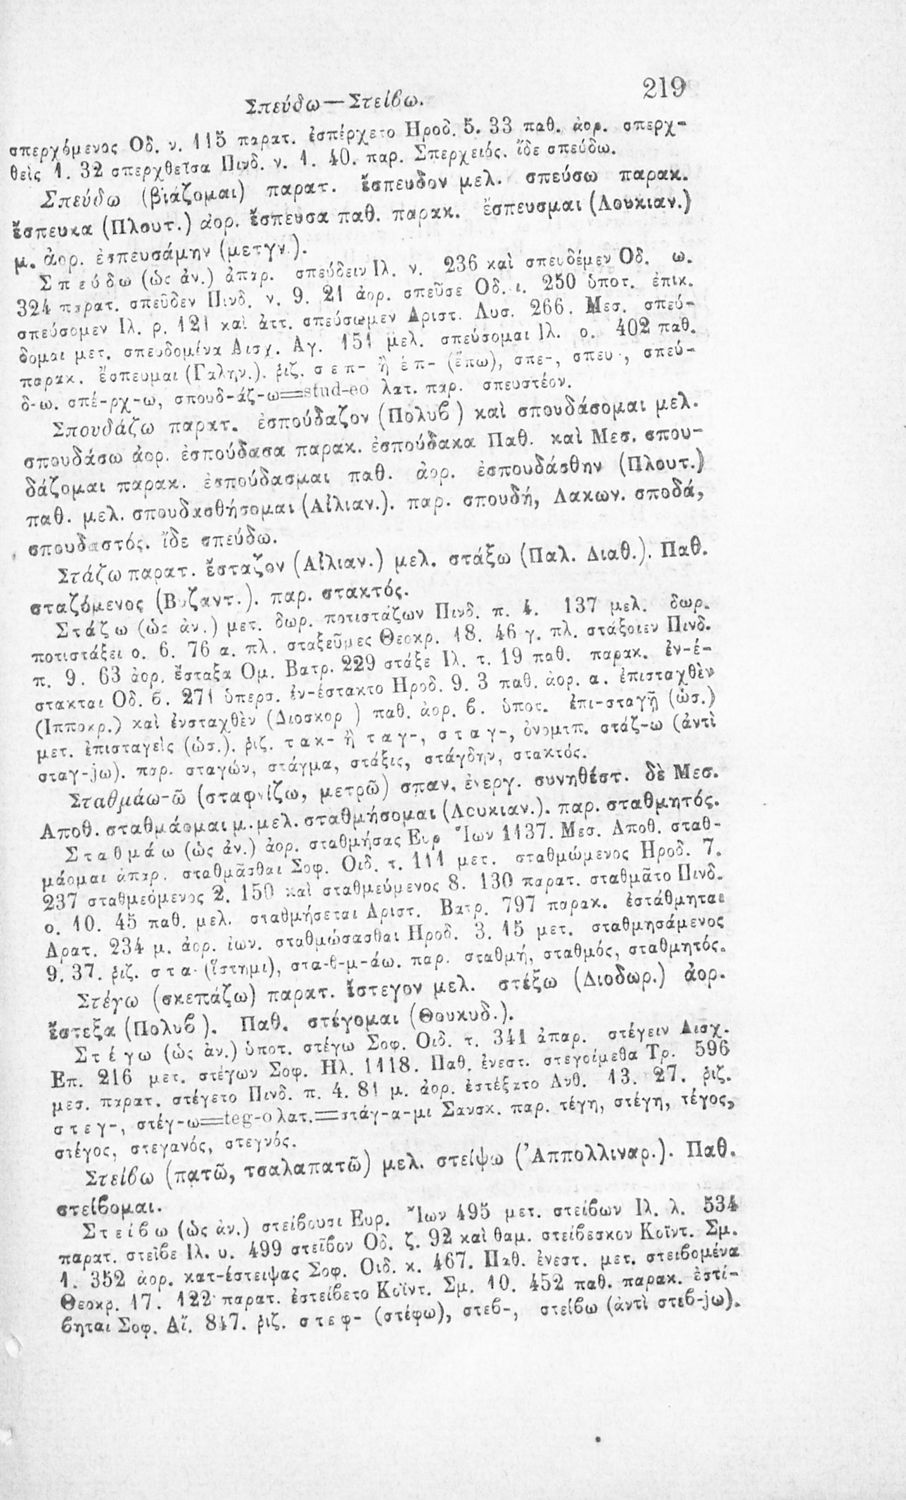 Σπεύδω—Στείβω.
219
σπερχόμενος Οδ. ν. 115 παρατ. ἐσπέρχετο Ηροδ. 5. 33 παθ. ἀορ. σπερχ-
θεὶς 1. 32 σπερχθεῖσα Πινδ. ν. 1. 40. παρ. Σπερχειός. ἴδε σπεύδω.
Σπεύδω (βιάζομαι) παρατ. ἔσπευδον μελ. σπεύσω παρακ.
ἔσπευκα (Πλουτ.) ἀορ. ἔσπευσα παθ. παρακ. ἔσπευσμαι (Λουκιαν.)
μ. ἀορ. ἐσπευσάμην (μετγν.).
Σπεύδω (ὡς ἀν.) ἀπαρ. σπεύδειν Ιλ. ν. 236 καὶ σπευδέμεν Οδ. ω.
324 παρατ. σπεῦδεν Πινδ. ν. 9. 21 ἀορ. σπεῦσε Οδ. ι. 250 ὑποτ. ἐπικ.
σπεύσομεν Ιλ. ρ. 121 καὶ ἀττ. σπεύσωμεν Αριστ. Λυσ. 266. Μεσ. σπεύ-
δομαι μετ. σπευδομένα Αισχ. Αγ. 151 μελ. σπεύσομαι Ιλ. ο. 402 παθ.
παρακ. ἔσπευμαι (Γαλην.). ῥιζ. σεπ- ἢ ἑπ- (ἕπω), σπε-, σπευ-, σπεύ-
δ-ω. σπέ-ρχ-ω, σπουδ-άζ-ω=stud-eo λατ. παρ. σπευστέον.
Σπουδάζω παρατ. ἐσπούδαζον (Πολυβ) καὶ σπουδάσομαι μελ.
σπουδάσω ἀορ. ἐσπούδασα παρακ. ἐσπούδακα Παθ. καὶ Μεσ. σπου-
δάζομαι παρακ. ἐσπούδασμαι παθ. ἀορ. ἐσπουδάσθην (Πλουτ.)
παθ. μελ. σπουδασθήσομαι (Αἰλιαν.). παρ. σπουδή, Λακων. σποδά,
σπουδαστός. ἴδε σπεύδω.
Στάζω παρατ. ἔσταζον (Αἰλιαν.) μελ. στάξω (Παλ. Διαθ.). Παθ.
σταζόμενος (Βυζαντ.). παρ. στακτός.
Στάζω (ὡς ἀν.) μετ. δωρ. ποτιστάζων Πινδ. π. 4. 137 μελ. δωρ.
ποτιστάξει ο. 6. 76 α. πλ. σταξεῦμες Θεοκρ. 18. 46 γ. πλ. στάξοισιν Πινδ.
π. 9. 63 ἀορ. ἔσταξα Ομ. Βατρ. 229 στάξε Ιλ. τ. 19 παθ. παρακ. ἐν-έ-
στακται Οδ. β. 271 ὑπερσ. ἐν-έστακτο Ηροδ. 9. 3 παθ. ἀορ. α. ἐπισταχθὲν
(Ιπποκρ.) καὶ ἐνσταχθὲν (Διοσκορ ) παθ. ἀορ. β. ὑποτ. ἐπι-σταγῇ (ὡσ.)
μετ. ἐπισταγεὶς (ὡσ.). ῥιζ. τακ- ἢ ταγ-, σταγ-, ὀνοματπ. στάζ-ω (ἀντὶ
σταγ-jω). παρ. σταγών, στάγμα, στάξις, στάγδην, στακτός.
Σταθμάω-ῶ (σταφνίζω, μετρῶ) σπαν. ἐνεργ. συνηθέστ. δὲ Μεσ.
Αποθ. σταθμάομαι μ. μελ. σταθμήσομαι (Λουκιαν.). παρ. σταθμητός.
Σταθμάω (ὡς ἀν.) ἀορ. σταθμήσας Ευρ Ἴων 1137. Μεσ. Αποθ. σταθ-
μάομαι ἀπαρ. σταθμᾶσθαι Σοφ. Οιδ. τ. 111 μετ. σταθμώμενος Ηροδ. 7.
237 σταθμεόμενος 2. 150 καὶ σταθμεύμενος 8. 130 παρατ. σταθμᾶτο Πινδ.
ο. 10. 45 παθ. μελ. σταθμήσεται Αριστ. Βατρ. 797 παρακ. ἐστάθμηται
Αρατ. 234 μ. ἀορ. ἰων. σταθμώσασθαι Ηροδ. 3. 15 μετ. σταθμησάμενος
9. 37. ῥιζ. στα- (ἵστημι), στα-θ-μ-άω. παρ. σταθμή, σταθμός, σταθμητός.
Στέγω (σκεπάζω) παρατ. ἔστεγον μελ. στέξω (Διοδωρ.) ἀορ.
ἔστεξα (Πολυβ ). Παθ. στέγομαι (Θουκυδ.).
Στέγω (ὡς ἀν.) ὑποτ. στέγω Σοφ. Οιδ. τ. 341 ἀπαρ. στέγειν Αισχ.
Επ. 216 μετ. στέγων Σοφ. Ηλ. 1118. Παθ. ἐνεστ. στεγοίμεθα Τρ. 596
μεσ. παρατ. στέγετο Πινδ. π. 4. 81 μ. ἀορ. ἐστέξατο Ανθ. 13. 27. ῥιζ.
στεγ-, στέγ-ω=teg-o λατ.=στάγ-α-μι Σανσκ. παρ. τέγη, στέγη, τέγος,
στέγος, στεγανός, στεγνός.
Στείβω (πατῶ, τσαλαπατῶ) μελ. στείψω (Ἀππολλιναρ.). Παθ.
στείβομαι.
Στείβω (ὡς ἀν.) στείβουσι Ευρ. Ἴων 495 μετ. στείβων Ιλ. λ. 534
παρατ. στεῖβε Ιλ. υ. 499 στεῖβον Οδ. ζ. 92 καὶ θαμ. στείβεσκον Κοΐντ. Σμ.
1. 352 ἀορ. κατ-έστειψας Σοφ. Οιδ. κ. 467. Παθ. ἐνεστ. μετ. στειβομένα
Θεοκρ. 17. 122 παρατ. ἐστείβετο Κοΐντ. Σμ. 10. 452 παθ. παρακ. ἐστί-
βηται Σοφ. Αἴ. 847. ῥιζ. στεφ- (στέφω), στεβ-, στείβω (ἀντὶ στεβ-jω).